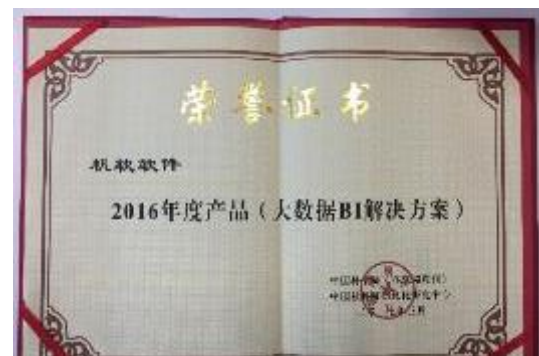 荣誉证书
帆软软件
2016年度产品（大数据BI解决方案）